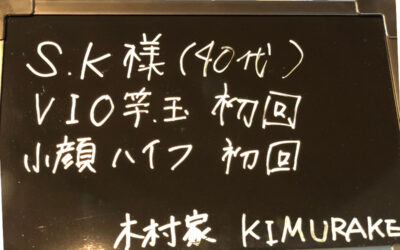 S.K 様 (40代)
VIO竿.玉 初回
小顔 ハイフ 初回
木村家 KIMURAKE